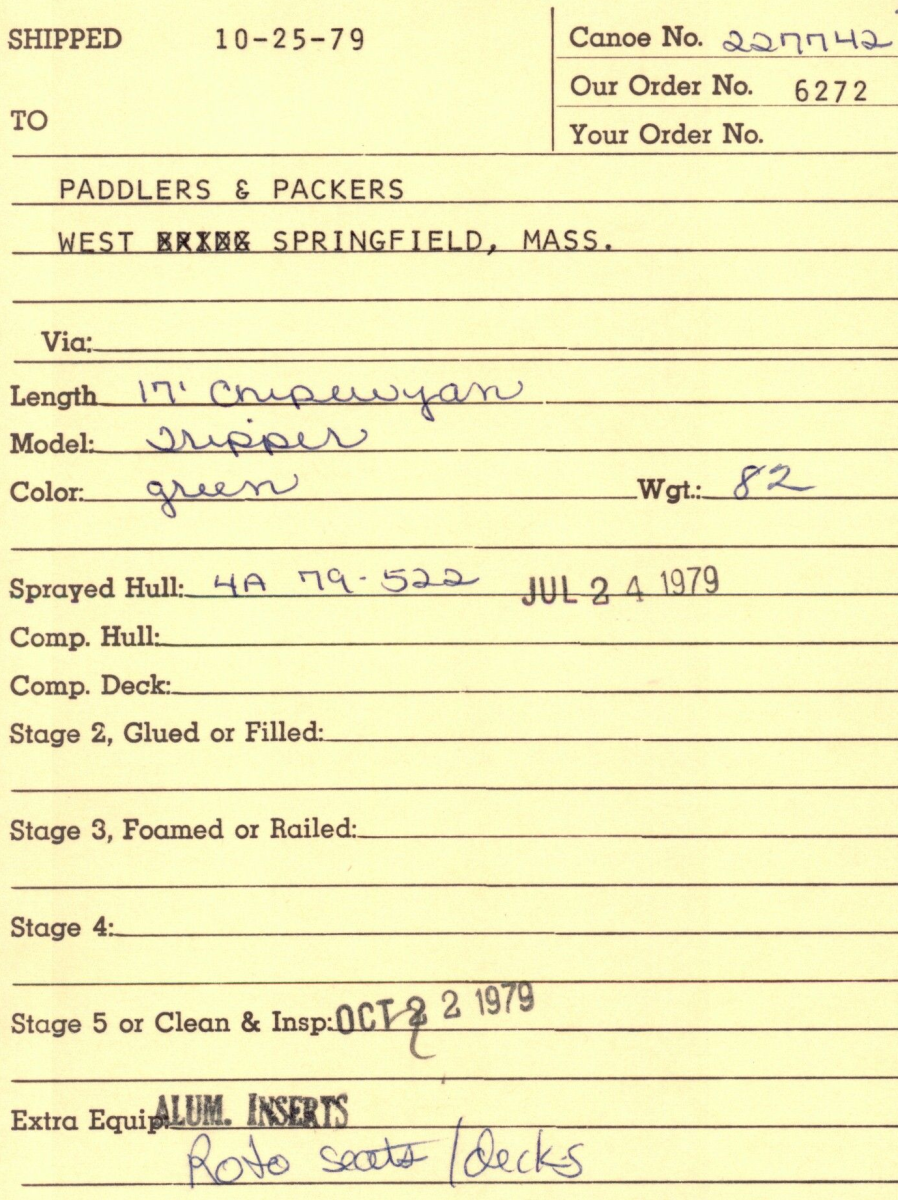 SHIPPED 10-25-79
Canoe No. 227742
Our Order No. 6272
TO
Your Order No.
PADDLERS & PACKERS
WEST SPRINGFIELD, MASS.
Via:
Length 17' Chipewyan
Model: Tripper
Color: green Wgt.: 82
Sprayed Hull: 4A 79-522 JUL 24 1979
Comp. Hull:
Comp. Deck:
Stage 2, Glued or Filled:
Stage 3, Foamed or Railed:
Stage 4:
Stage 5 or Clean & Insp: OCT 22 1979
Extra Equip: ALUM. INSERTS
Roto seats/decks